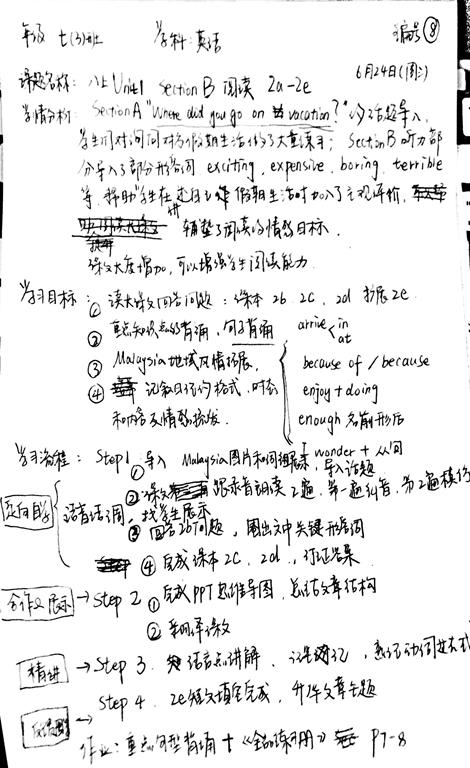 年级 七(3)班 学科:英语 编号 ⑧
6月24日(周二)
课题名称: 八上 Unit1 Section B 阅读 2a-2e
学情分析: Section A "Where did you go on vacation?" 以话题导入,
学生们对询问对方假期生活作了大量练习; Section B 听力部
分导入了部分形容词 exciting, expensive, boring, terrible
等, 帮助学生在述自己假期生活时加入了主观评价,
铺垫了阅读的情感目标.
课文大度增加, 可以增强学生阅读能力.
学习目标: ① 读大课文回答问题: 课本 2b 2c, 2d 扩展 2e.
② 重点知识点的背诵, 句子背诵
③ Malaysia 地域风情拓展.
④ 记叙日记的格式, 时态
和内容及情感抒发.
arrive < in at
because of / because
enjoy + doing
enough 名前形后
I wonder + 从句
学习流程: Step 1 ① 导入 Malaysia图片和问题展示, 导入话题
② 课文 跟录音朗读 2遍, 第一遍纠音, 第2遍模仿
语音语调, 找学生展示
定向自学 ③ 回答2b问题, 圈出文中关键形容词
④ 完成课本 2c, 2d, 订正答案
合作及展示 → Step 2 ① 完成PPT思维导图, 总结文章结构
② 翻译课文
精讲 → Step 3. 语言点讲解, 记笔记, 熟记动词过去式
→ Step 4. 2e 短文填空完成, 升华文章主题
作业: 重点句型背诵 + 《全品练习册》 P7-8